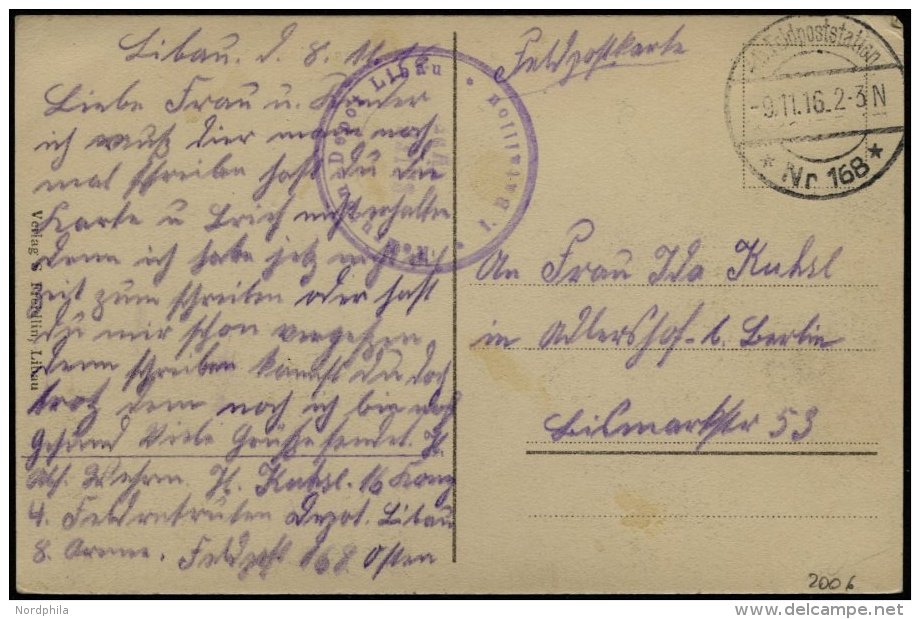 Libau. d. 8. 11.
Liebe Frau u. Kinder
ich muß dier noch
mal schreiben hast du die
Karte u Brief nicht erhalten
denn ich habe jetz nicht
zeit zum schreiben oder hast
du mir schon vergeßen
denn schreiben kannst du doch
trotz dem noch ich bin noch
Gesund Viele Grüße sendet
H. Kuhsl. 16 Komp
4. Feldrekruten Depot. Libau
8. Armee. Feldpost 168 Osten
Feldpostkarte
An Frau Ida Kuhsl
in Adlershof b. Berlin
Bismarkstr 53
Feldpoststation
-9.11.16. 2-3 N
* Nr 168 *
Depot Libau * I. Bat.
Verlag Libau
2006
Nordphila
delcampe.net